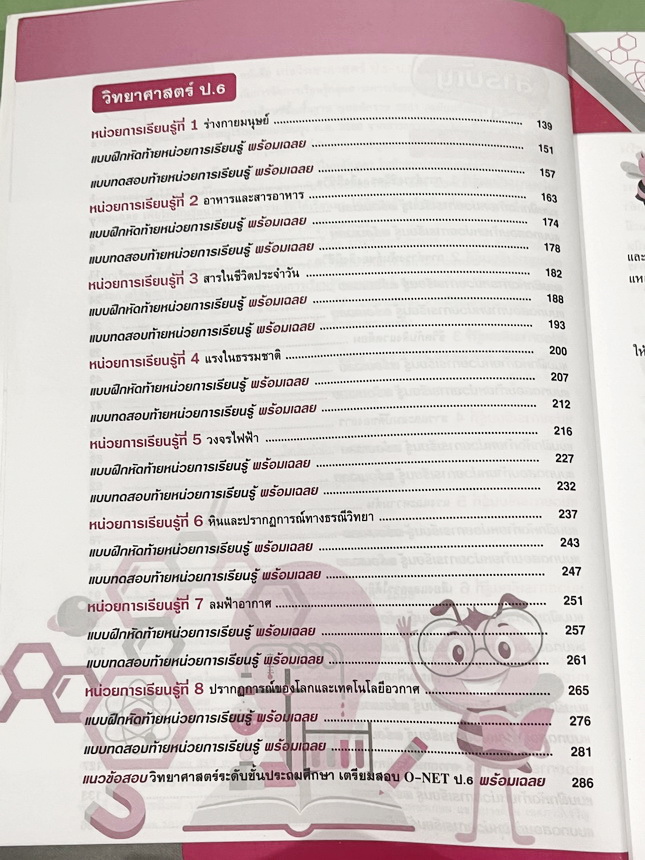 วิทยาศาสตร์ ป.6
หน่วยการเรียนรู้ที่ 1 ร่างกายมนุษย์ 139
แบบฝึกหัดท้ายหน่วยการเรียนรู้ พร้อมเฉลย 151
แบบทดสอบท้ายหน่วยการเรียนรู้ พร้อมเฉลย 157
หน่วยการเรียนรู้ที่ 2 อาหารและสารอาหาร 163
แบบฝึกหัดท้ายหน่วยการเรียนรู้ พร้อมเฉลย 174
แบบทดสอบท้ายหน่วยการเรียนรู้ พร้อมเฉลย 178
หน่วยการเรียนรู้ที่ 3 สารในชีวิตประจำวัน 182
แบบฝึกหัดท้ายหน่วยการเรียนรู้ พร้อมเฉลย 188
แบบทดสอบท้ายหน่วยการเรียนรู้ พร้อมเฉลย 193
หน่วยการเรียนรู้ที่ 4 แรงในธรรมชาติ 200
แบบฝึกหัดท้ายหน่วยการเรียนรู้ พร้อมเฉลย 207
แบบทดสอบท้ายหน่วยการเรียนรู้ พร้อมเฉลย 212
หน่วยการเรียนรู้ที่ 5 วงจรไฟฟ้า 216
แบบฝึกหัดท้ายหน่วยการเรียนรู้ พร้อมเฉลย 227
แบบทดสอบท้ายหน่วยการเรียนรู้ พร้อมเฉลย 232
หน่วยการเรียนรู้ที่ 6 หินและปรากฏการณ์ทางธรณีวิทยา 237
แบบฝึกหัดท้ายหน่วยการเรียนรู้ พร้อมเฉลย 243
แบบทดสอบท้ายหน่วยการเรียนรู้ พร้อมเฉลย 247
หน่วยการเรียนรู้ที่ 7 ลมฟ้าอากาศ 251
แบบฝึกหัดท้ายหน่วยการเรียนรู้ พร้อมเฉลย 257
แบบทดสอบท้ายหน่วยการเรียนรู้ พร้อมเฉลย 261
หน่วยการเรียนรู้ที่ 8 ปรากฏการณ์ของโลกและเทคโนโลยีอวกาศ 265
แบบฝึกหัดท้ายหน่วยการเรียนรู้ พร้อมเฉลย 276
แบบทดสอบท้ายหน่วยการเรียนรู้ พร้อมเฉลย 281
แนวข้อสอบ วิทยาศาสตร์ระดับชั้นประถมศึกษา เตรียมสอบ O-NET ป.6 พร้อมเฉลย 286
และ